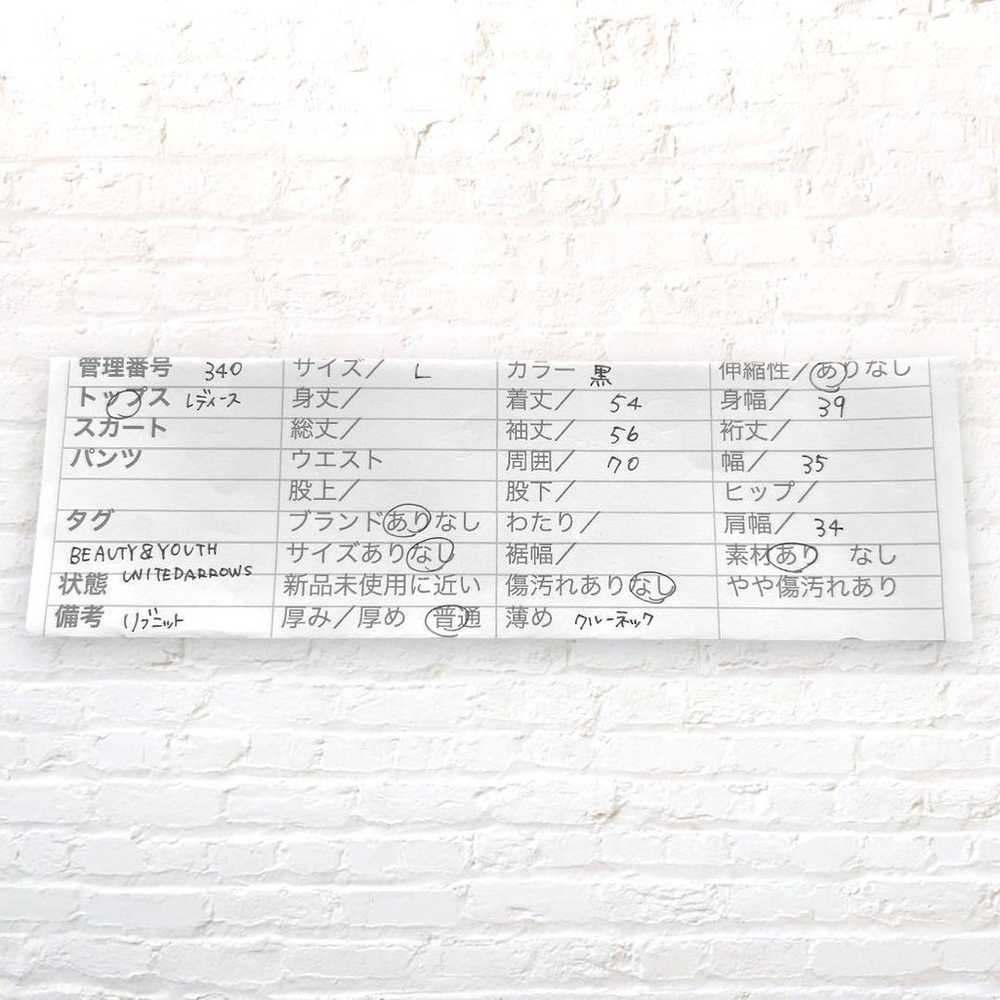 管理番号 340 サイズ/ L カラー 黒 伸縮性/ありなし
トップス レディース 身丈/ 着丈/ 54 身幅/ 39
スカート 総丈/ 袖丈/ 56 裄丈/
パンツ ウエスト 周囲/ 70 幅/ 35
股上/ 股下/ ヒップ/
タグ ブランドありなし わたり/ 肩幅/ 34
BEAUTY&YOUTH サイズありなし 裾幅/ 素材あり なし
UNITEDARROWS
状態 新品未使用に近い 傷汚れありなし やや傷汚れあり
備考 リブニット 厚み/厚め 普通 薄め クルーネック